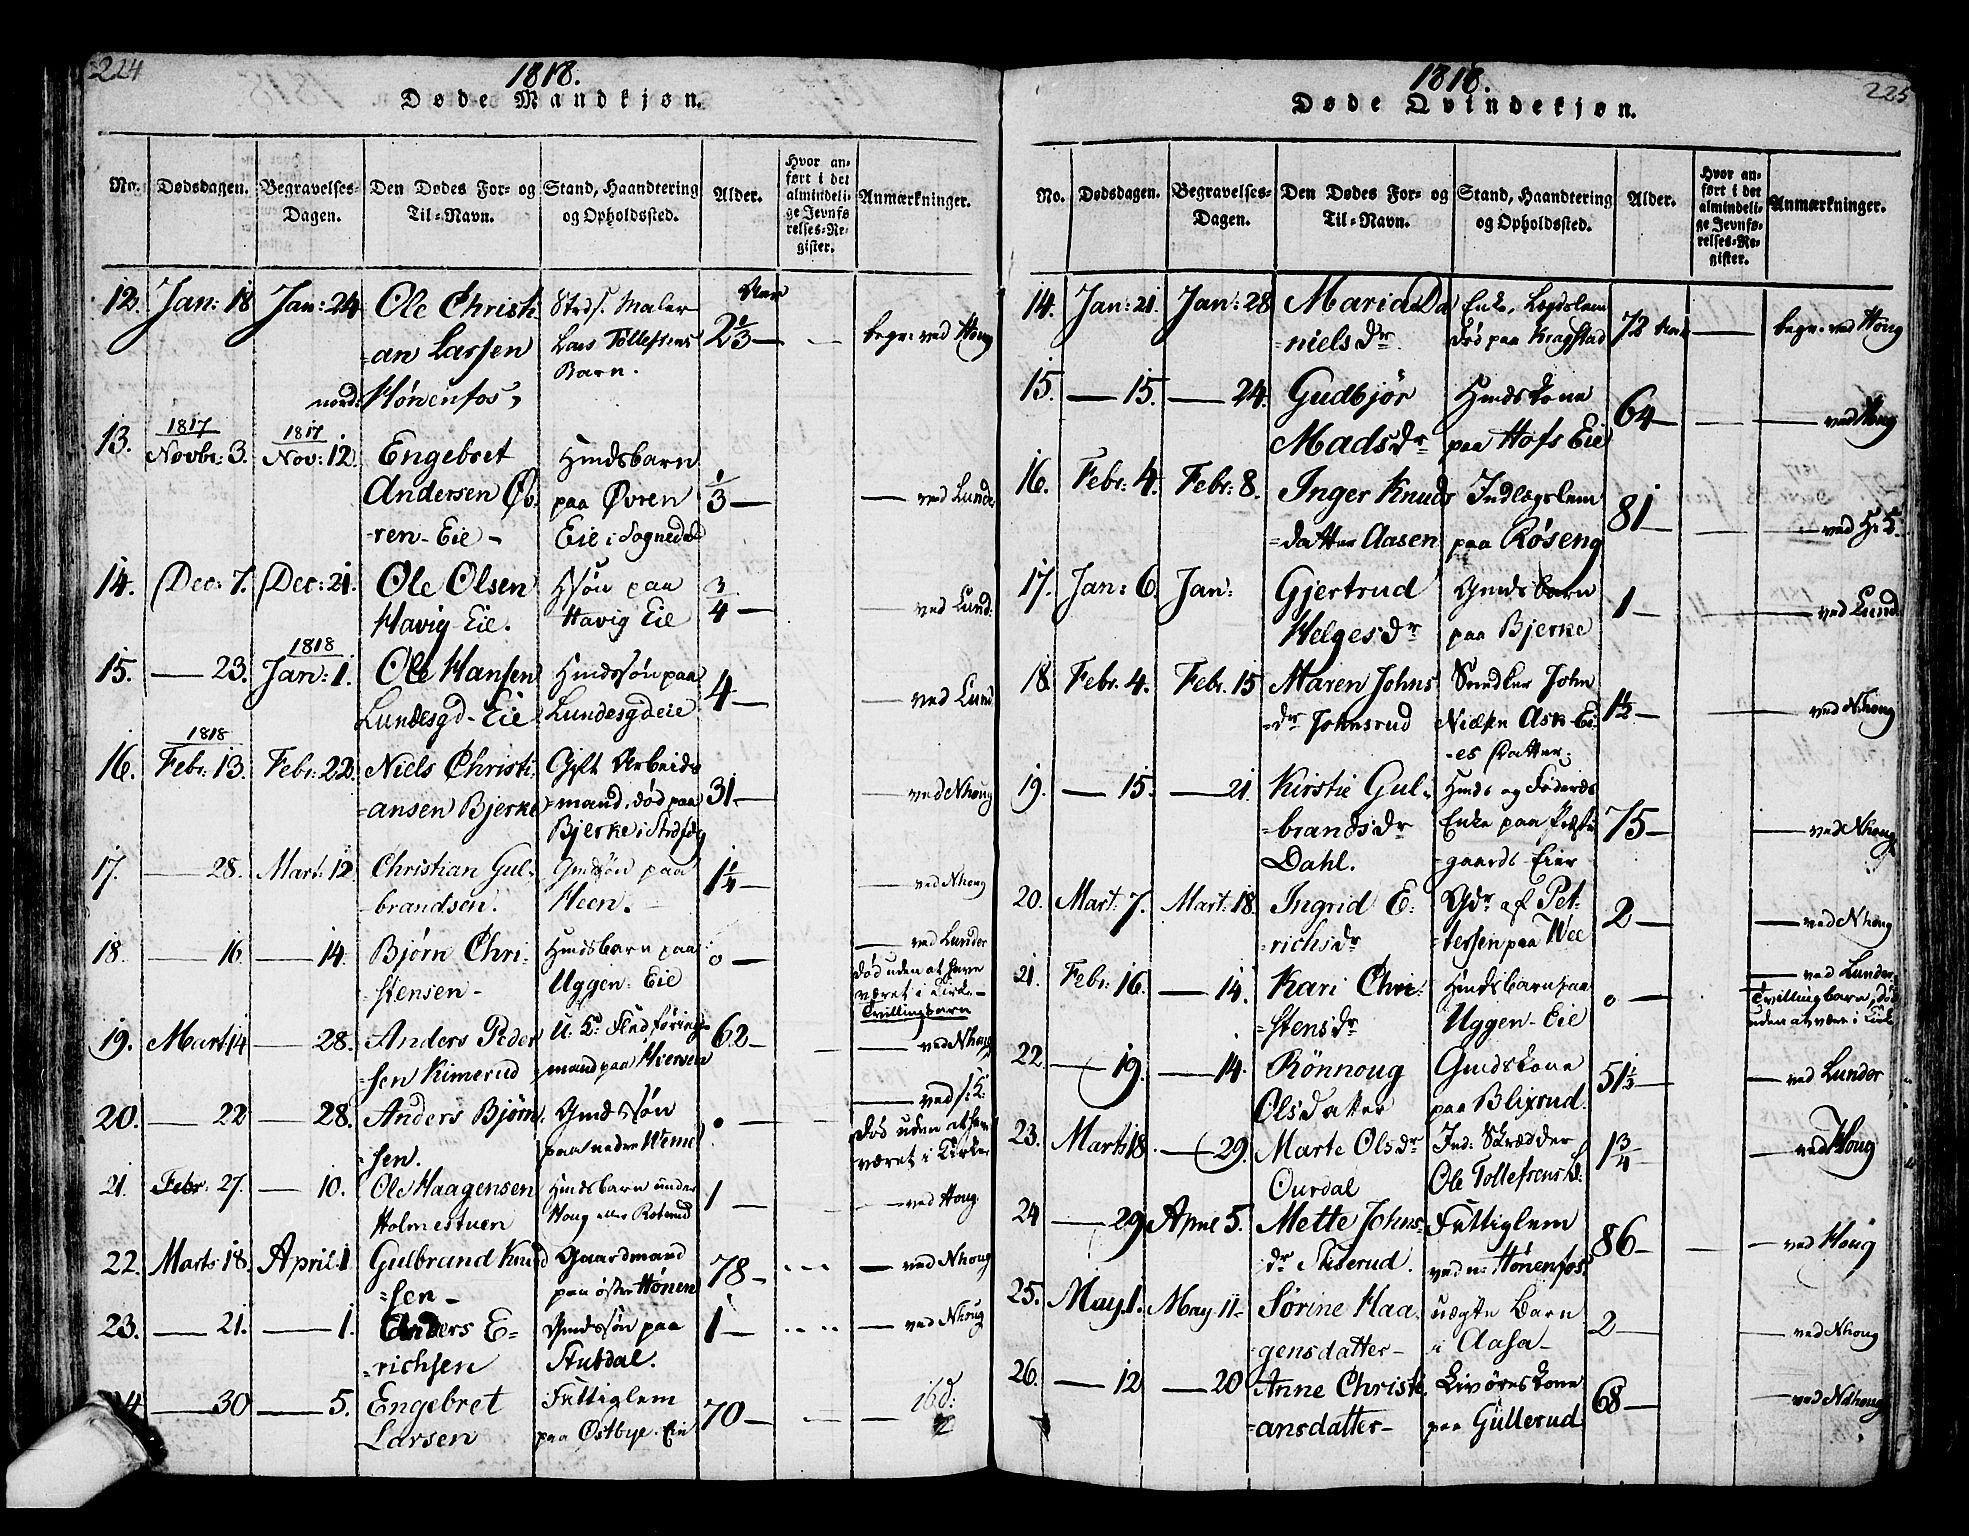 224
1818.
Døde Mandkjøn.
No. Dødsdagen. Begravelses-Dagen. Den Dødes For- og Til-Navn. Stand, Haandtering og Opholdssted. Alder. Hvor anført i det almindelige Jevnførelses-Register. Anmærkninger.
12. Jan: 18 Jan: 24 Ole Christi
=an Larssen
nord: Hønenfos,
Maler
Lars Tollefsens
Barn.
Aar
2 1/3 —
begr: ved Houg
13. 1817 Novbr: 3. 1817 Nov: 12. Engebret
Andersen Øv
=ren-Eie -
Hmdsbarn
paa Øvren
Eie i Sognedal
1/3 —
— ved Lunde
14. Dec: 7. Dec: 21. Ole Olsen
Havig-Eie.
søn paa
Havig Eie
3/4 —
— ved Lund:
15. — 23. 1818 Jan: 1. Ole Hansen
Lundesgd-Eie
Hmdssøn paa
Lundesgdeie
4 —
— ved Lund
16. 1818 Febr: 13. Febr: 22. Niels Christi
=ansen Bjerke
Gift Arbeids
=mand, død paa
Bjerke i
31 —
— ved Nhoug
17. — 28. Mart: 12. Christian Gul=
=brandsen.
Gmdssøn paa
Heen.
1 1/4 —
— ved Nhoug
18. — 16. — 14. Bjørn Chri=
=stensen -
Hmdsbarn paa
Uggen-Eie
0 —
— ved Lunder
død uden at have
været i Kirke -
Tvillingbarn
19. Mart: 14 — 28. Anders Peder
=sen Kimerud
=mand paa
62 —
— ved Nhoug
20. — 22 — 28. Anders Bjørn
=sen.
Gmdssøn
paa nedre Weme
0 —
død uden at have
været i Kirke
21. Febr: 27. — 10. Ole Haagensen
Holmestuen
Hmdsbarn under
Houg eller
1 —
— ved Houg.
22. Marts 18. April: 1 Gulbrand Knud
=sen -
Gaardmand
paa østre Hønen
78 —
— ved Nhoug
23. — 21. — 1. Anders E=
=richsen
Gmdssøn paa
Stubdal.
1 —
— ved Nhoug
24 — 30 — 5. Engebret
Larsen
Fattiglem
paa Østbye. Eie
70 —
— ibd:
225
1818.
Døde Qvindekjøn.
No. Dødsdagen. Begravelses-Dagen. Den Dødes For- og Til-Navn. Stand, Haandtering og Opholdssted. Alder. Hvor anført i det almindelige Jevnførelses-Register. Anmærkninger.
14. Jan: 21. Jan: 28 Maria Da
=nielsdr
Enke, Lægdslem
død paa Kragstad
72 Aar —
begr: ved Houg
15. — 15. — 24. Gudbjør
Madsdr
Hmdskone
paa Hofs Eie
64 —
— ved Houg
16. Febr: 4. Febr: 8. Inger Knuds
=datter Aasen
Indlægslem
paa Røseng
81 —
17. Jan: 6. Jan: Gjertrud
Helgesdr
Gmdsbarn
paa Bjerke
1 —
— ved Lund:
18. Febr: 4. Febr. 15 Maren Johns
=dr Johnsrud
Snedker John
Nielsen Ask-Ei
=es Datter.
1 1/2 —
— ved Nhoug
19. — 15. — 21. Kirstie Gul=
=brandsdr
Dahl.
Hmds og Føderåds
Enke paa Præste
gaards Eier
75 —
— ved Nhoug
20. Mart: 7. Mart: 18. Ingrid E:
=richsdr
Gdr af Pet=
=tersen paa Wee
2 —
— ved Nhoug
21. Febr: 16. — 14. Kari Chri:
=stensdr
Hmdsbarn paa
Uggen-Eie
0 —
— ved Lunder
Tvillingbarn, død
uden at være i Kirke
22 — 19. — 14. Rønnoug
Olsdatter
Gmdskone
paa Blixrud.
51 1/3 —
— ved Lunder
23. Marts 18. — 29. Marte Olsdr
Ourdal
Ind: Skrædder
Ole Tollefsens D:
1 3/4 —
— ved Houg
24 — 29 April 5. Mette Johns=
=dr
Fattiglem
ved n: Hønenfos
86 —
— ved Houg
25. May. 1. May. 11 - Sørine Haa=
gensdatter -
uægte Barn
i Aasa -
2 —
— ved Nhoug
26. — 12 — 20 Anne Christi
=ansdatter -
Livøreskone
paa Gullerud
68 —
— ved Ndhoug